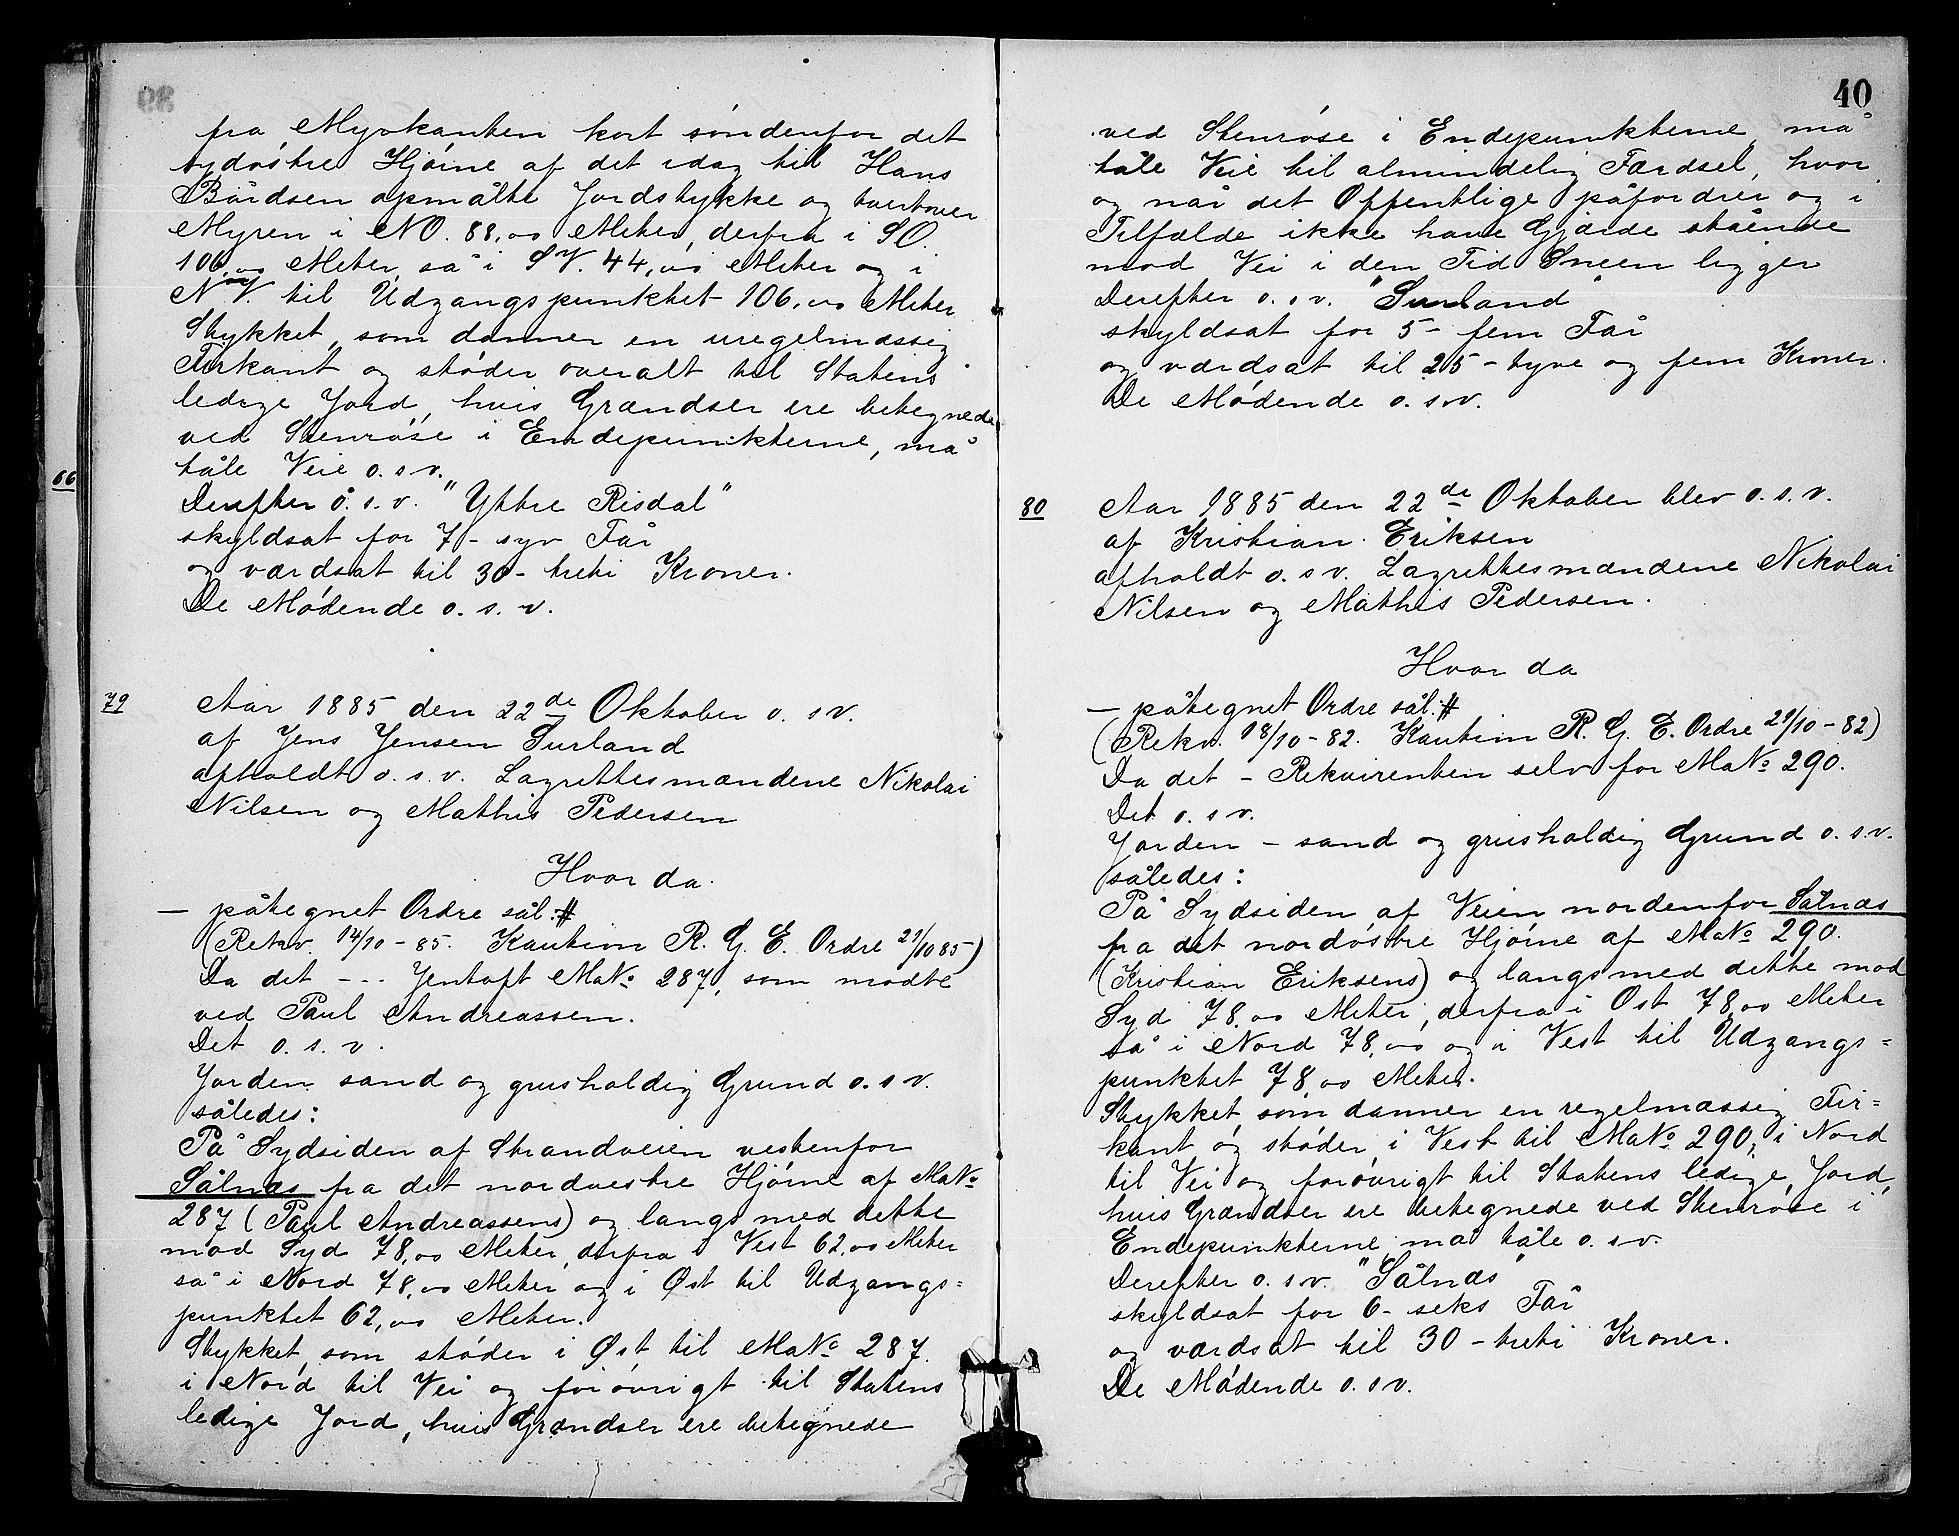 fra Myrkanten kort søndenfor det
sydøstre Hjørne af det idag til Hans
Bårdsen opmålte Jordstykke og tvertover
Myren i NO. 88,00 Meter, derfra i SO.
106,00 Meter, så i SV. 44,00 Meter og i
NV. til Udgangspunktet 106,00 Meter
Stykket, som danner en uregelmæssig
Firkant og støder overalt til Statens
ledige Jord, hvis Grændser ere betegnede
ved Stenrøse i Endepunkterne, må
66
tåle Veie o. s v.
Derefter o. s. v. "Yttre Risdal"
skyldsat for 7 - syv Får
og værdsat til 30 - treti Kroner.
De Mødende o. s. v.
79
Aar 1885 den 22de Oktober o. s v.
af Jens Jensen Surland
afholdt o. s. v. Lagrettesmændene Nikolai
Nilsen og Mathis Pedersen
Hvor da.
— påtegnet Ordre sål. #
(Rekv. 14/10 - 85. Kautim R. G. E. Ordre 21/10 85)
Da det - - - Jentoft MaNo 287, som mødte
ved Paul Andreassen.
Det o. s. v.
Jorden sand og grusholdig Grund o. s v.
således:
På Sydsiden af Strandveien vestenfor
Sålnæs fra det nordvestre Hjørne af MaNo
287 (Paul Andreassens) og langs med dette
mod Syd 78,00 Meter, derfra i Vest 62,00 Meter
så i Nord 78,00 Meter og i Øst til Udgangs=
punktet 62,00 Meter.
Stykket, som støder i Øst til MaNo 287.
i Nord til Vei og forøvrigt til Statens
ledige Jord, hvis Grændser ere betegnede
40
ved Stenrøse i Endepunkterne, må
tåle Veie til almindelig Færdsel, hvor
og når det Offentlige påfordrer og i
Tilfælde ikke have Gjærde stående
mod Vei i den Tid Sneen ligger
Derefter o. s v. "Surland"
skyldsat for 5 - fem Får
og værdsat til 25 - tyve og fem Kroner.
De Mødende o. s. v.
80
Aar 1885 den 22de Oktober blev o. s. v.
af Kristian Eriksen
afholdt o. s v. Lagrettesmændene Nikolai
Nilsen og Mathis Pedersen.
Hvor da
— påtegnet Ordre sål. #
(Rekv. 18/10 - 82. Kautim R. G. E. Ordre 21/10 - 82)
Da det - Rekvirenten selv for MaNo 290.
Det o. s v.
Jorden - sand og grusholdig Grund o. s. v.
således:
På Sydsiden af Veien nordenfor Sålnæs
fra det nordøstre Hjørne af MaNo 290.
(Kristian Eriksens) og langsmed dette mod
Syd 78,00 Meter, derfra i Øst 78,00 Meter
så i Nord 78,00 og i Vest til Udgangs=
punktet 78,00 Meter.
Stykket, som danner en regelmæssig Fir=
kant og støder i Vest til MaNo 290, i Nord
til Vei og forøvrigt til Statens ledige Jord,
hvis Grændser ere betegnede ved Stenrøse i
Endepunkterne, må tåle o. s v.
Derefter o. s v. "Sålnæs"
skyldsat for 6 - seks Får
og værdsat til 30 - treti Kroner.
De Mødende o. s v.